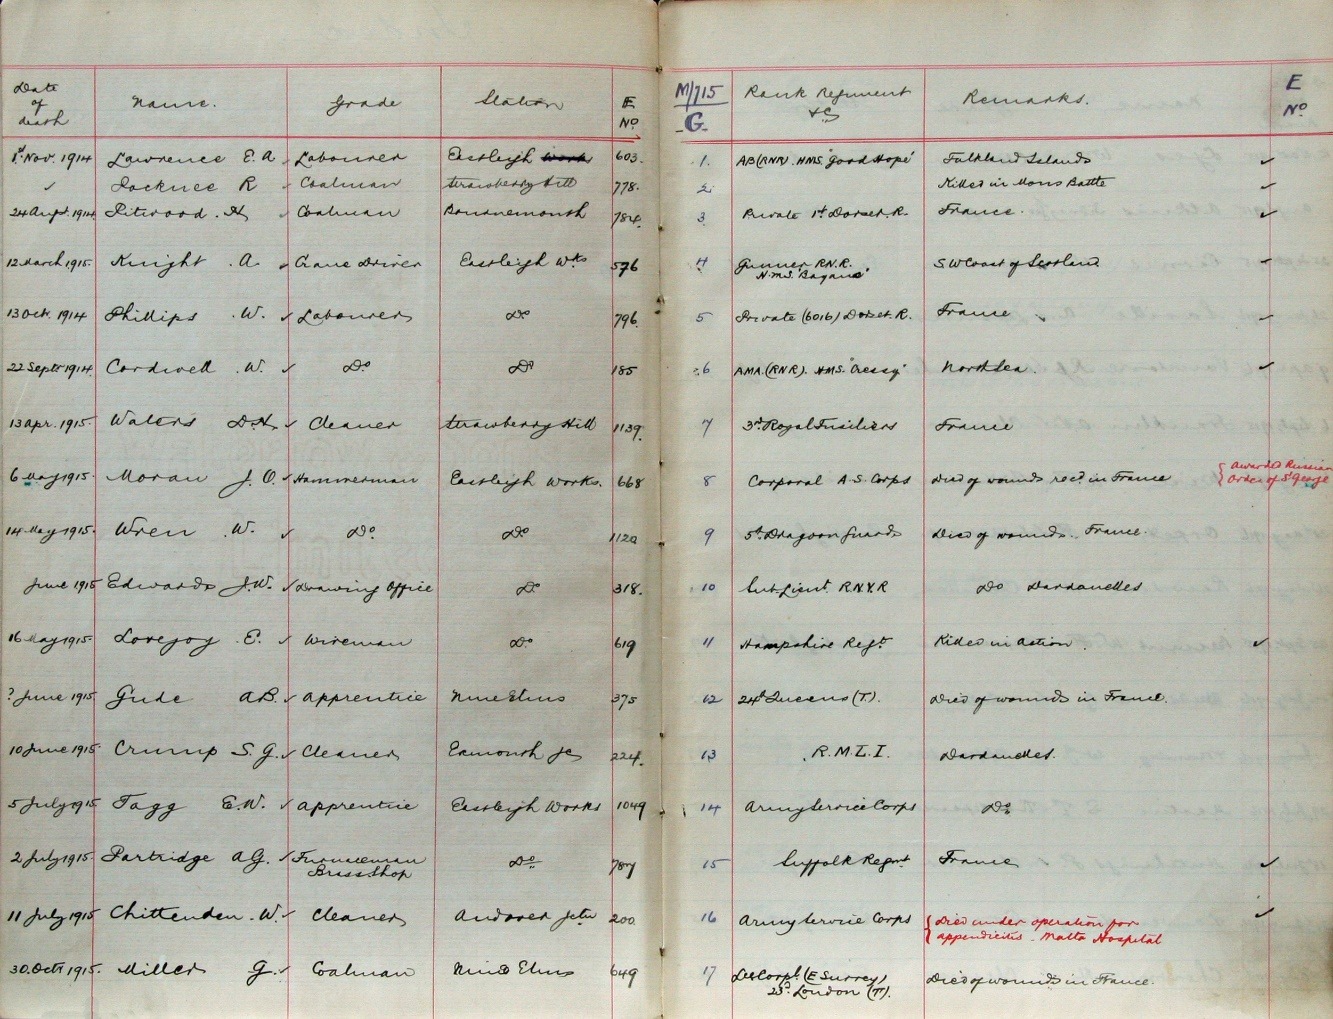 Date of death Name. Grade Station E No M/715 G. Rank Regiment &c Remarks. E No
1st Nov. 1914 Lawrence E. A. Labourer Eastleigh Work 603. 1. AB (RNR). HMS. "Good Hope" Falkland Islands
R Coalman Strawberry Hill 778. 2. Killed in Mons Battle
24 Augt. 1914 Pitwood. H Coalman Bournemouth 784. 3 Private 1st Dorset. R. France.
12 March 1915. Knight. A. Crane Driver Eastleigh Wks 576 4 Gunner R.N.R. S.W Coast of Scotland
H.M.S. "Bayano"
13 Oct. 1914 Phillips. W. Labourer Do 796. 5 Private (6016) Dorset. R. France
22 Septr 1914. Cordwell. W. Do. Do 185 6 AMA. (RNR). HMS. "Cressy" North Sea.
13 Apr. 1915. Waters D.H. Cleaner Strawberry Hill 1139. 7 3rd Royal Fusiliers France
6 May 1915. Moran J. O. Hammerman Eastleigh Works. 668 8 Corporal A. S. Corps Died of wounds recd. in France { Awarded Russian
Order of St George
14 May 1915. Wren. W. Do. Do. 1120 9 5th. Dragoon Guards Died of wounds. France.
June 1915 Edwards J.W. Drawing Office Do 318. 10 Sub. Lieut. R.N.V.R Do Dardanelles
16 May 1915. Lovejoy E. Wireman Do. 619 11 Hampshire Regt. Killed in action.
? June 1915. Gude A.B. Apprentice Nine Elms 375 12 24th Queens (T). Died of wounds in France.
10 June 1915. Crump S. G. Cleaner Exmouth Jc 224. 13 R. M. L. I. Dardanelles.
5 July 1915 Tagg E.W. Apprentice Eastleigh Works 1049 14 Army Service Corps Do.
2 July 1915. Partridge A G. Furnaceman Do 787 15 Suffolk Regmt. France
Brass Shop
11 July 1915 Chittenden. W. Cleaner Andover Jctn 200. 16 Army Service Corps { Died under operation for
appendicitis - Malta Hospital
30. Octr 1915. Miller G. Coalman Nine Elms 649 17 Lce Corpl. (E Surrey) Died of wounds in France.
23rd. London (T).